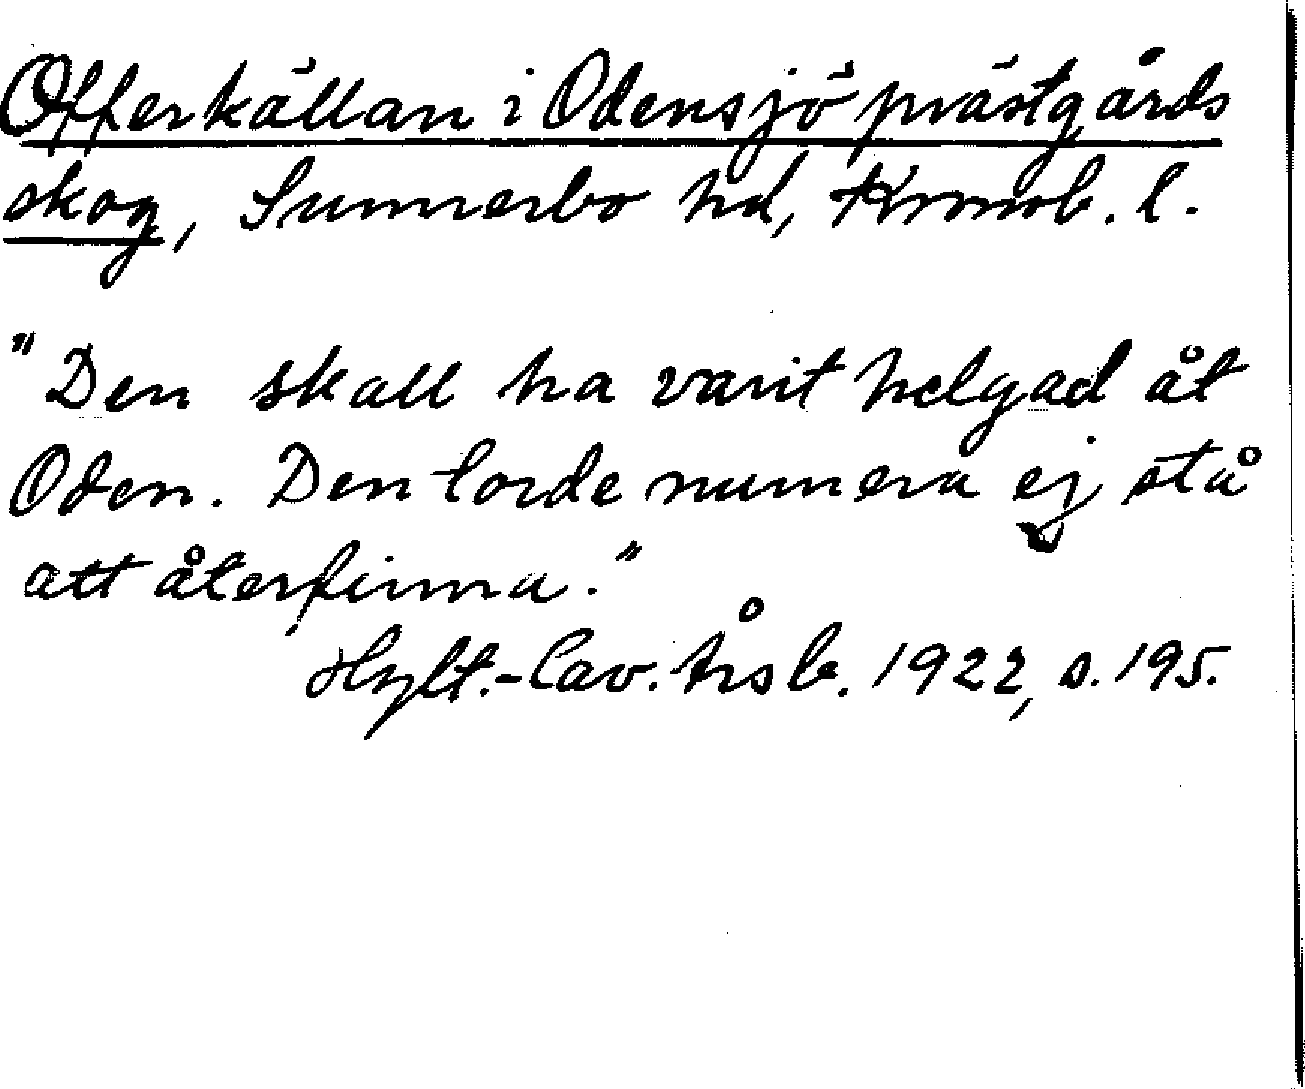 Offerkällan i Odensjö prästgårds
skog, Sunnerbo hd, Kronob. l.
"Den skall ha varit helgad åt
Oden. Den torde numera ej stå
att återfinna."
Hylt.-Cav. årsb. 1922, s. 195.